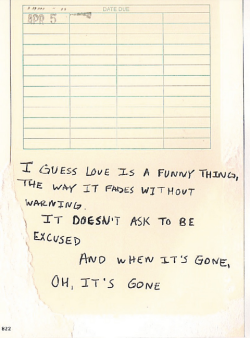 DATE DUE
APR 5
I GUESS LOVE IS A FUNNY THING,
THE WAY IT FADES WITHOUT
WARNING.
IT DOESN'T ASK TO BE
EXCUSED
AND WHEN IT'S GONE,
OH, IT'S GONE